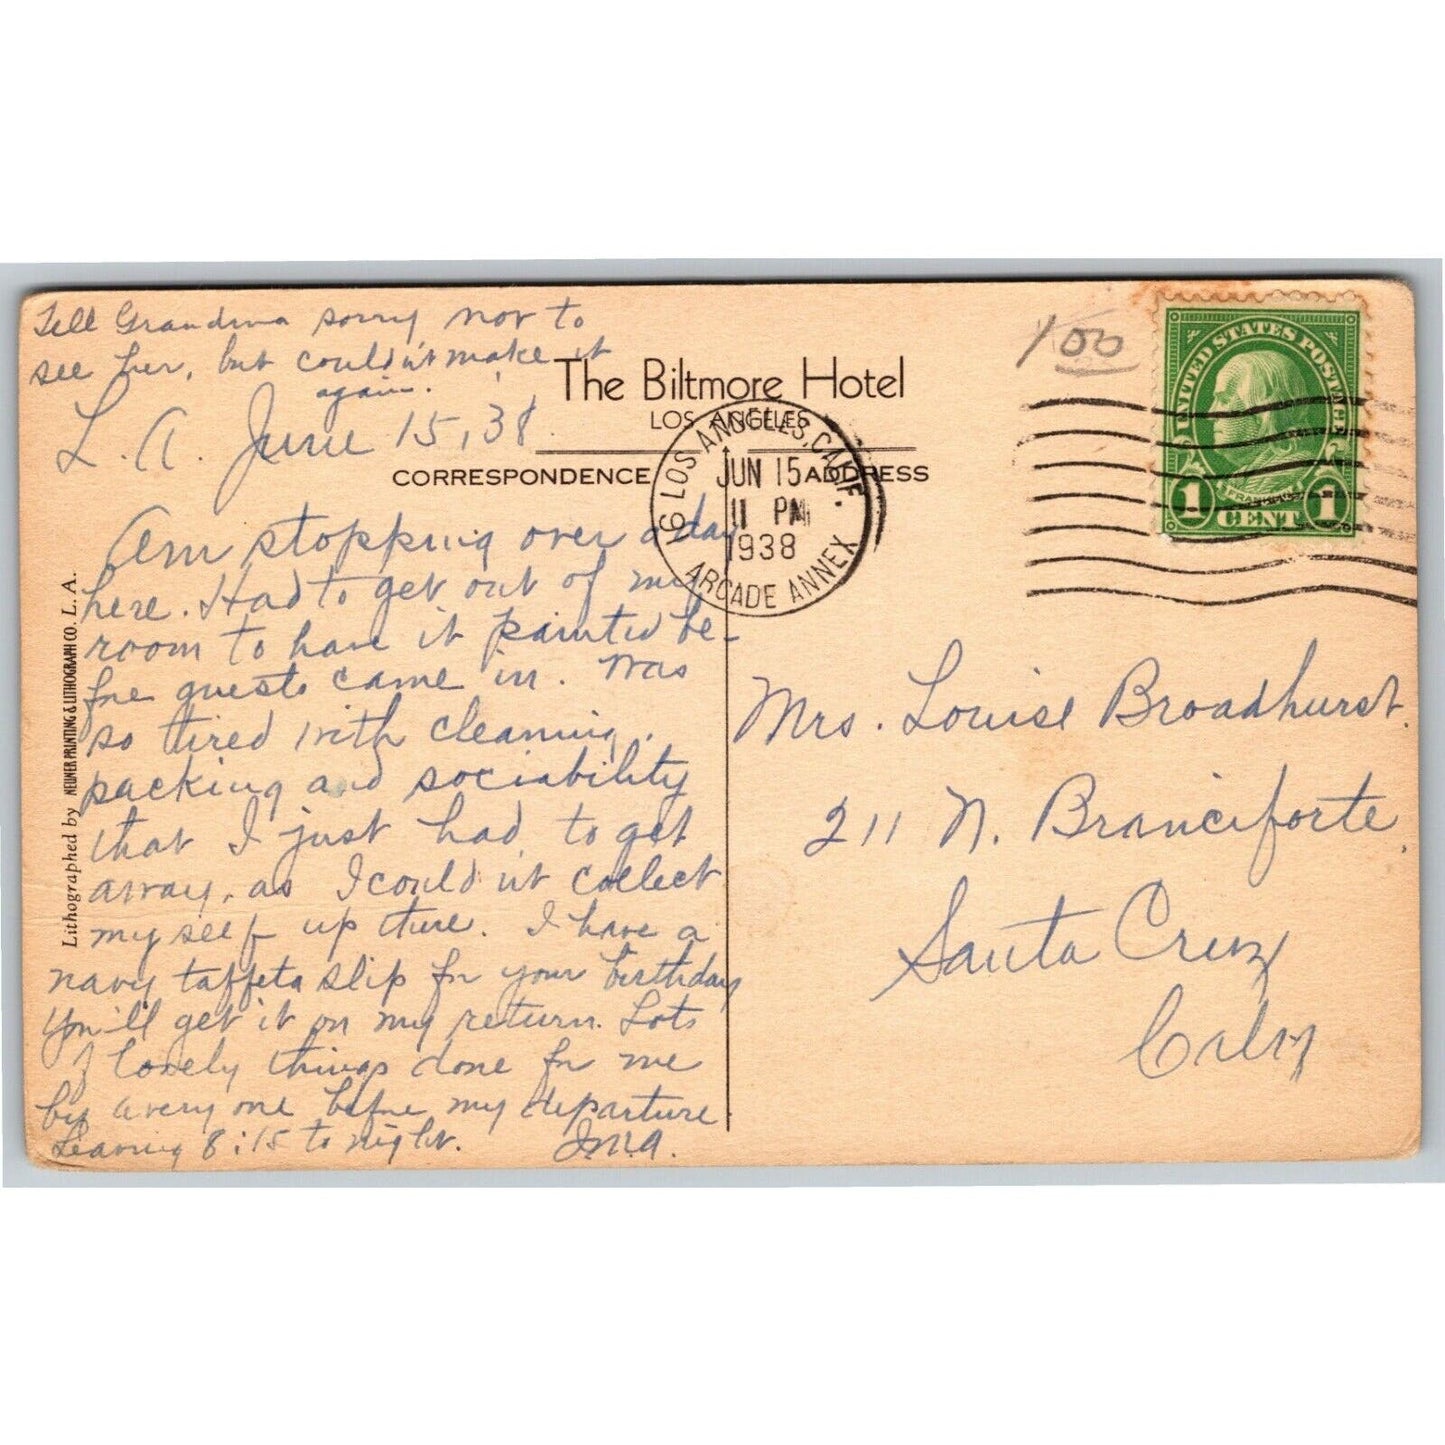 Tell Grandma sorry not to
see her, but couldn't make it
again.
L.A. June 15, '38
The Biltmore Hotel
LOS ANGELES
CORRESPONDENCE
ADDRESS
LOS ANGELES, CALIF.
JUN 15
11 PM
1938
ARCADE ANNEX
6
1 00
UNITED STATES POSTAGE
FRANKLIN
1 CENT 1
Am stopping over a day
here. Had to get out of my
room to have it painted be-
fore guests came in. Was
so tired with cleaning,
packing and sociability
that I just had to get
away, as I couldn't collect
myself up there. I have a
navy taffeta slip for your birthday
You'll get it on my return. Lots
of lovely things done for me
by everyone before my departure
Leaving 8:15 to night.
Mrs. Louise Broadhurst.
211 N. Branciforte
Santa Cruz
Calif
Lithographed by NEUNER PRINTING & LITHOGRAPH CO. L.A.